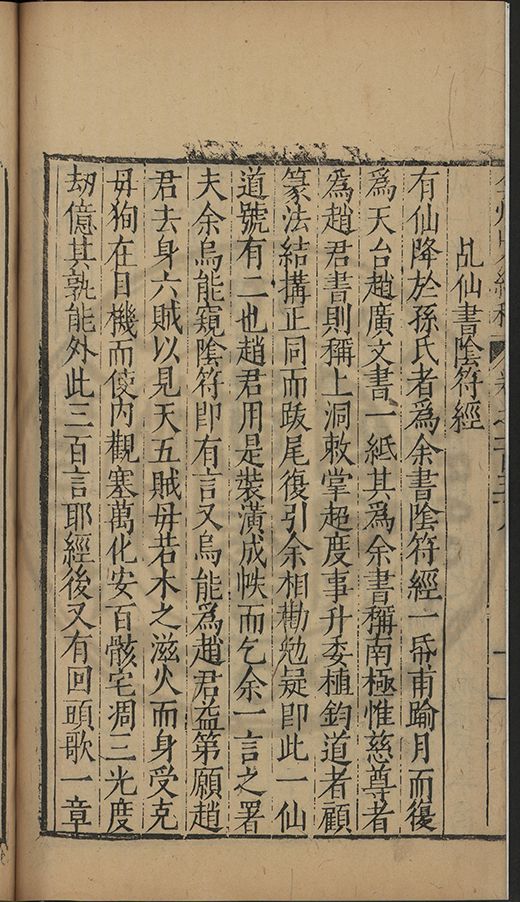 乩仙書陰符經
有仙降於孫氏者爲余書陰符經一帋甫踰月而復
爲天台趙廣文書一紙其爲余書稱南極惟慈尊者
爲趙君書則稱上洞敕掌超度事升委植鈞道者顧
篆法結搆正同而跋尾復引余相勸勉疑卽此一仙
道號有二也趙君用是裝潢成帙而乞余一言之署
夫余烏能窺陰符卽有言又烏能爲趙君益第願趙
君去身六賊以見天五賊毋若木之滋火而身受克
毋狗在目機而使內觀塞萬化安百骸宅凋三光度
刼億其孰能外此三百言耶經後又有回頭歌一章